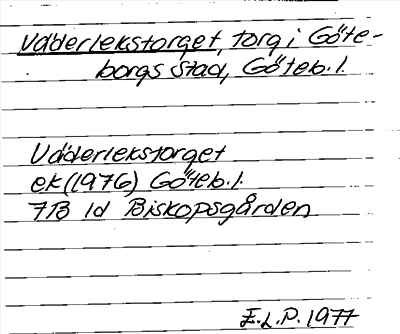 Väderlekstorget, torg i Göte-
borgs stad, Göteb. l.
Väderlekstorget
ek (1976) Göteb. l.
7B 1d Biskopsgården
E.L.P. 1977